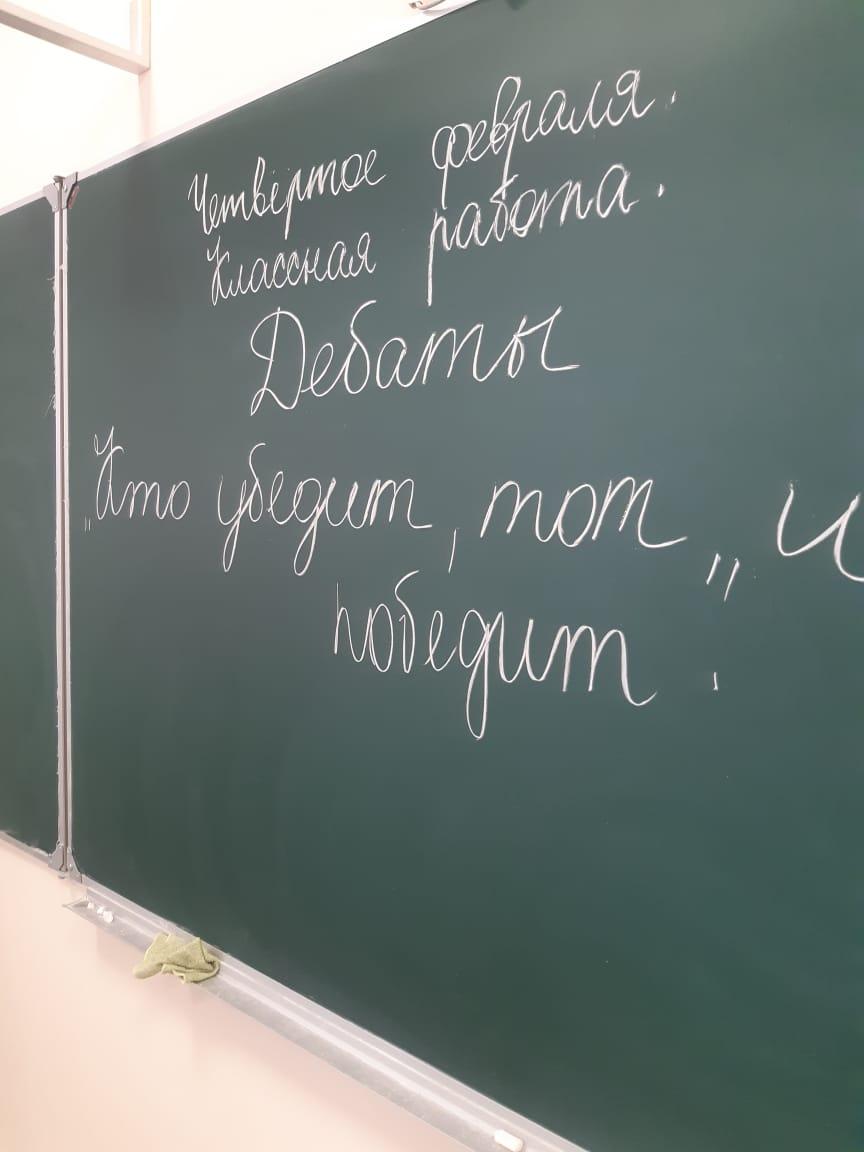 Четвёртое февраля.
Классная работа.
Дебаты
„Кто убедит, тот „ и
победит.